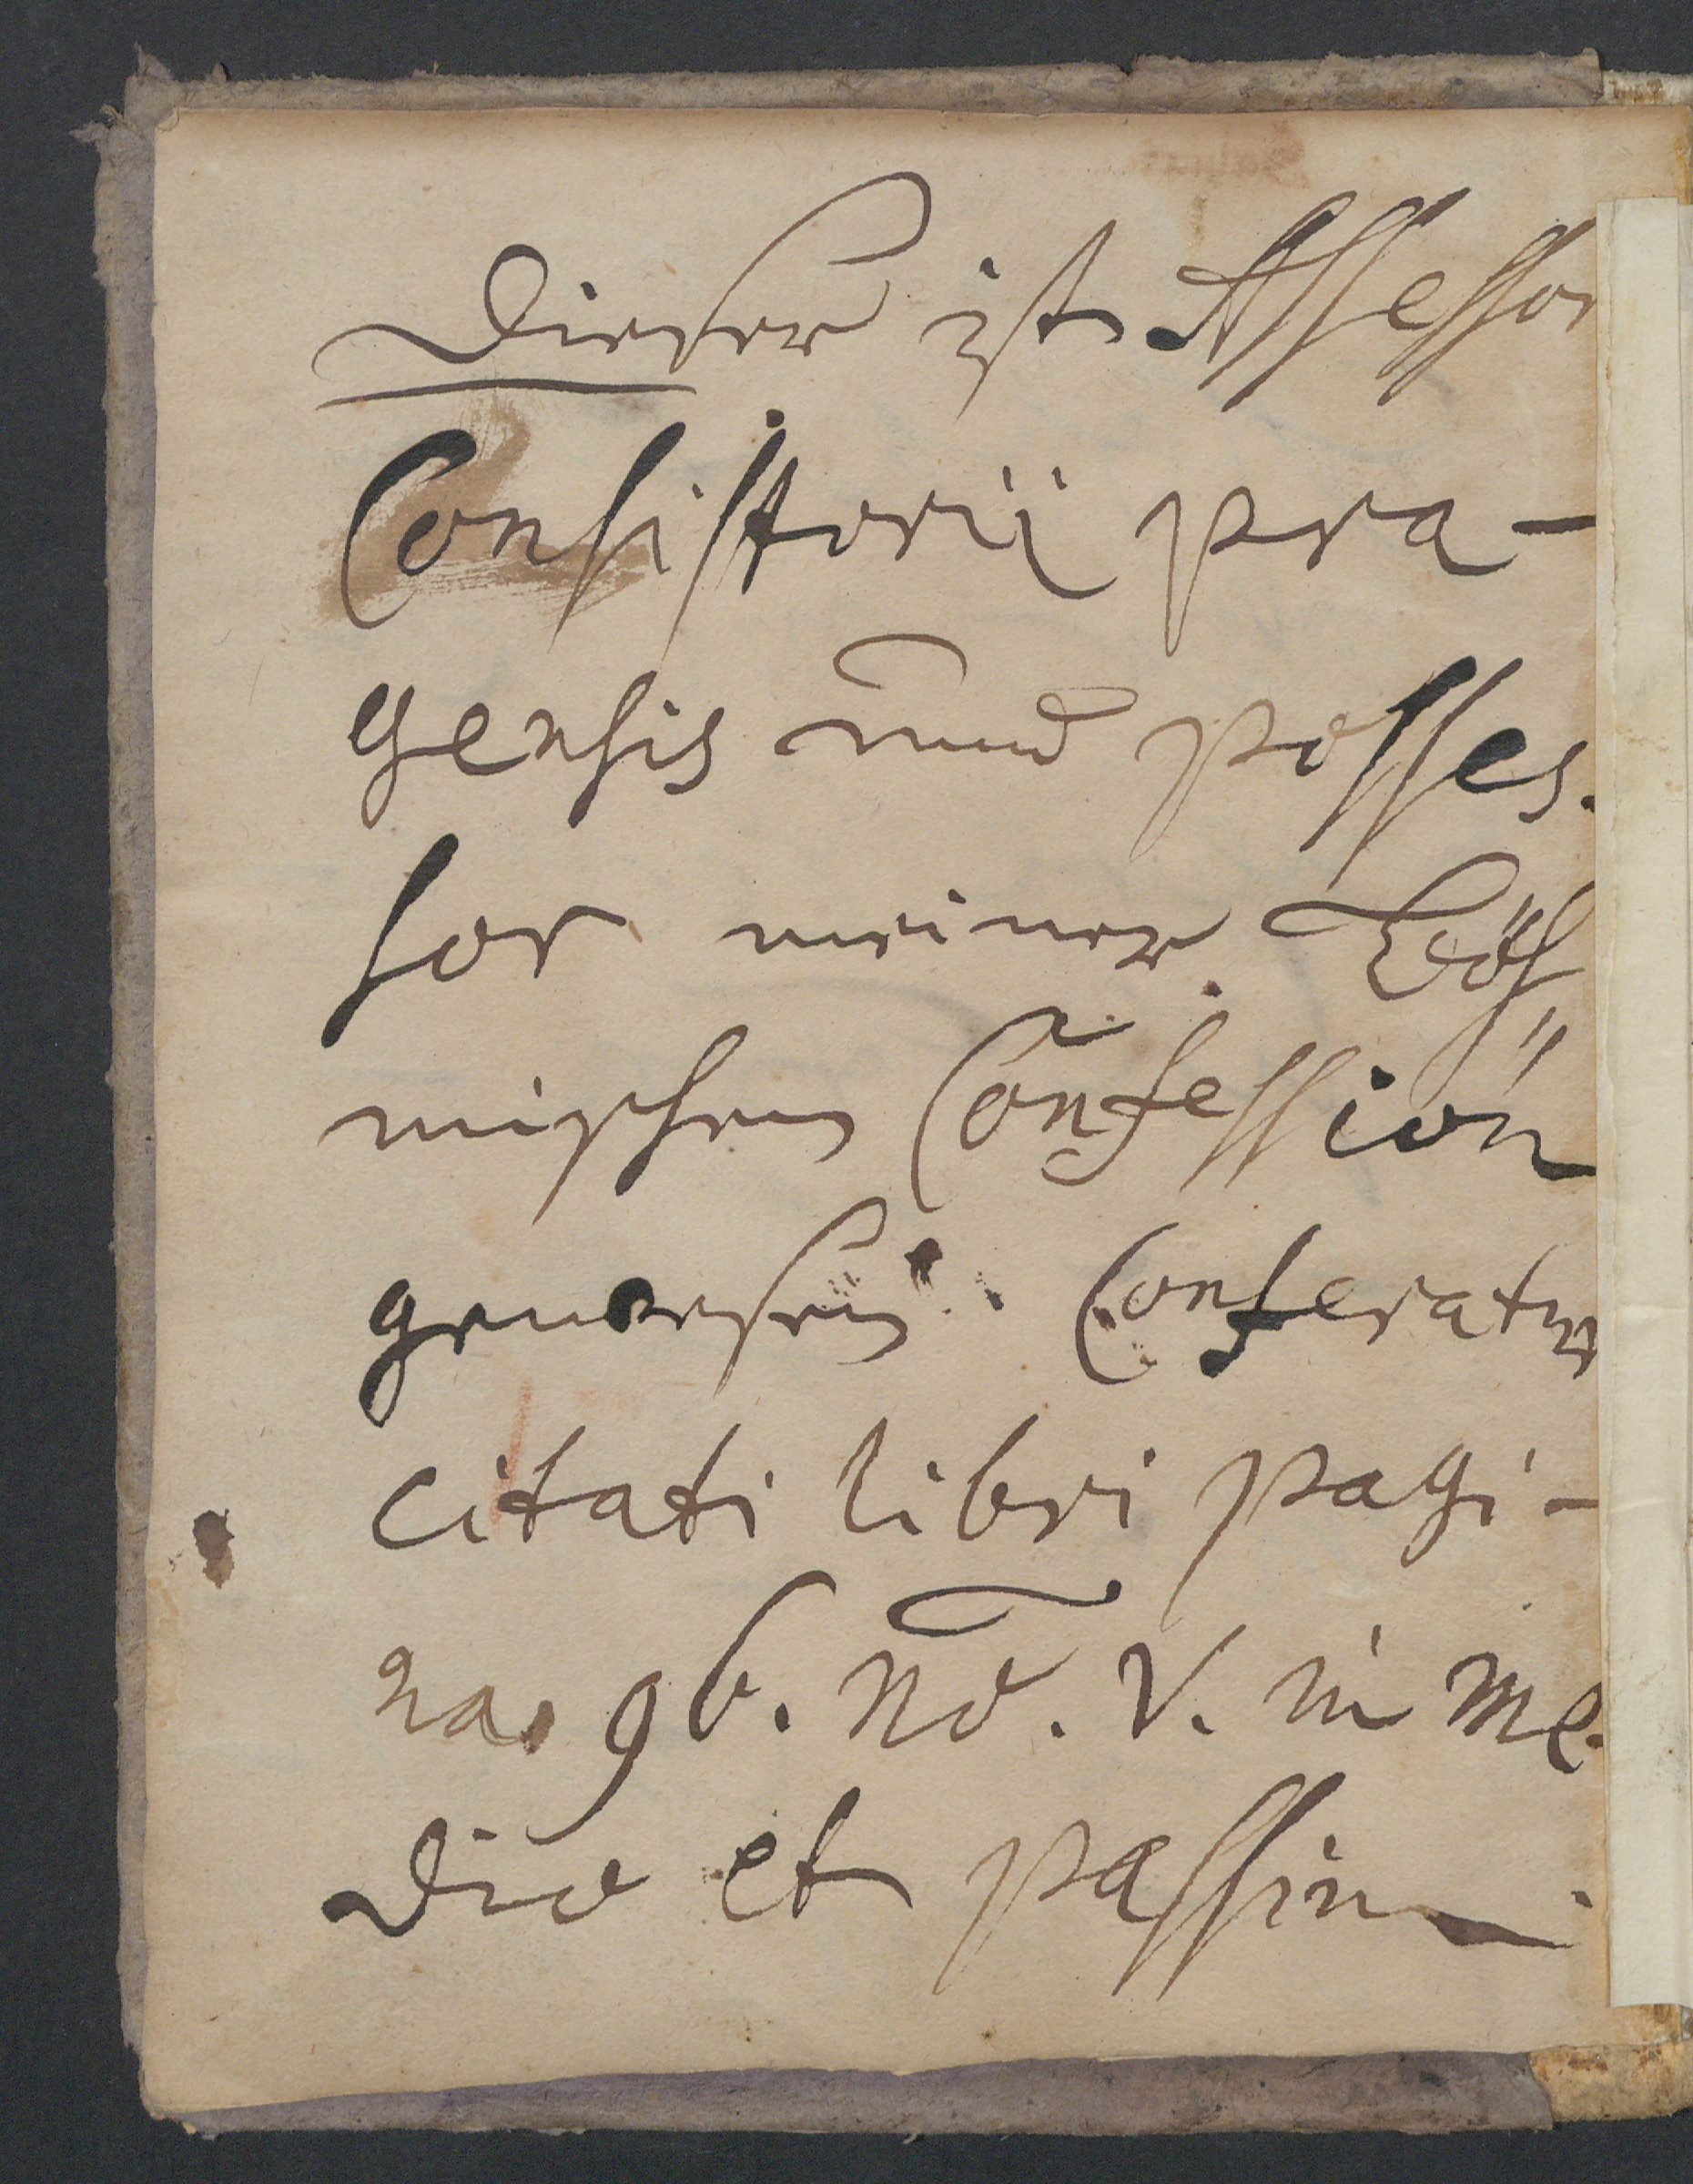 Dieser ist Assessor
Consistorij pra-
gensis und posses-
sor meiner Böh
mischen Confession
gewesen. Conferatur
citati libri pagi-
na. 96. No. V. in me-
dio et passim.